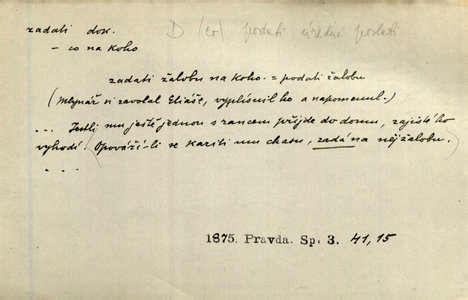 zadati dok. D (er) podati úředně poslati
– co na koho
zadati žalobu na koho. = podati žalobu
(Mlynář si zavolal Eliáše, vyplísnil ho a napomenul.)
... Jestli mu ještě jednou s rancem přijde do domu, zajisté ho
vyhodí. (Opováží-li se kaziti mu chasu, zadá na něj žalobu.
. . . .
1875. Pravda. Sp. 3. 41,15